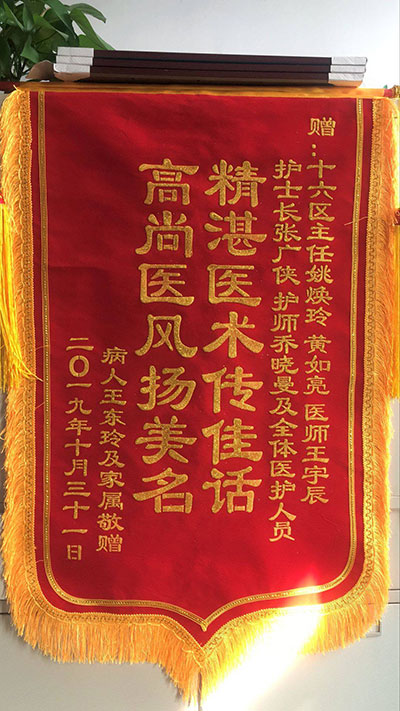 赠：十六区主任姚焕玲 黄如亮 医师王宇辰
护士长张广侠 护师乔晓曼及全体医护人员
精湛医术传佳话
高尚医风扬美名
病人王东玲及家属敬赠
二〇一九年十月三十一日